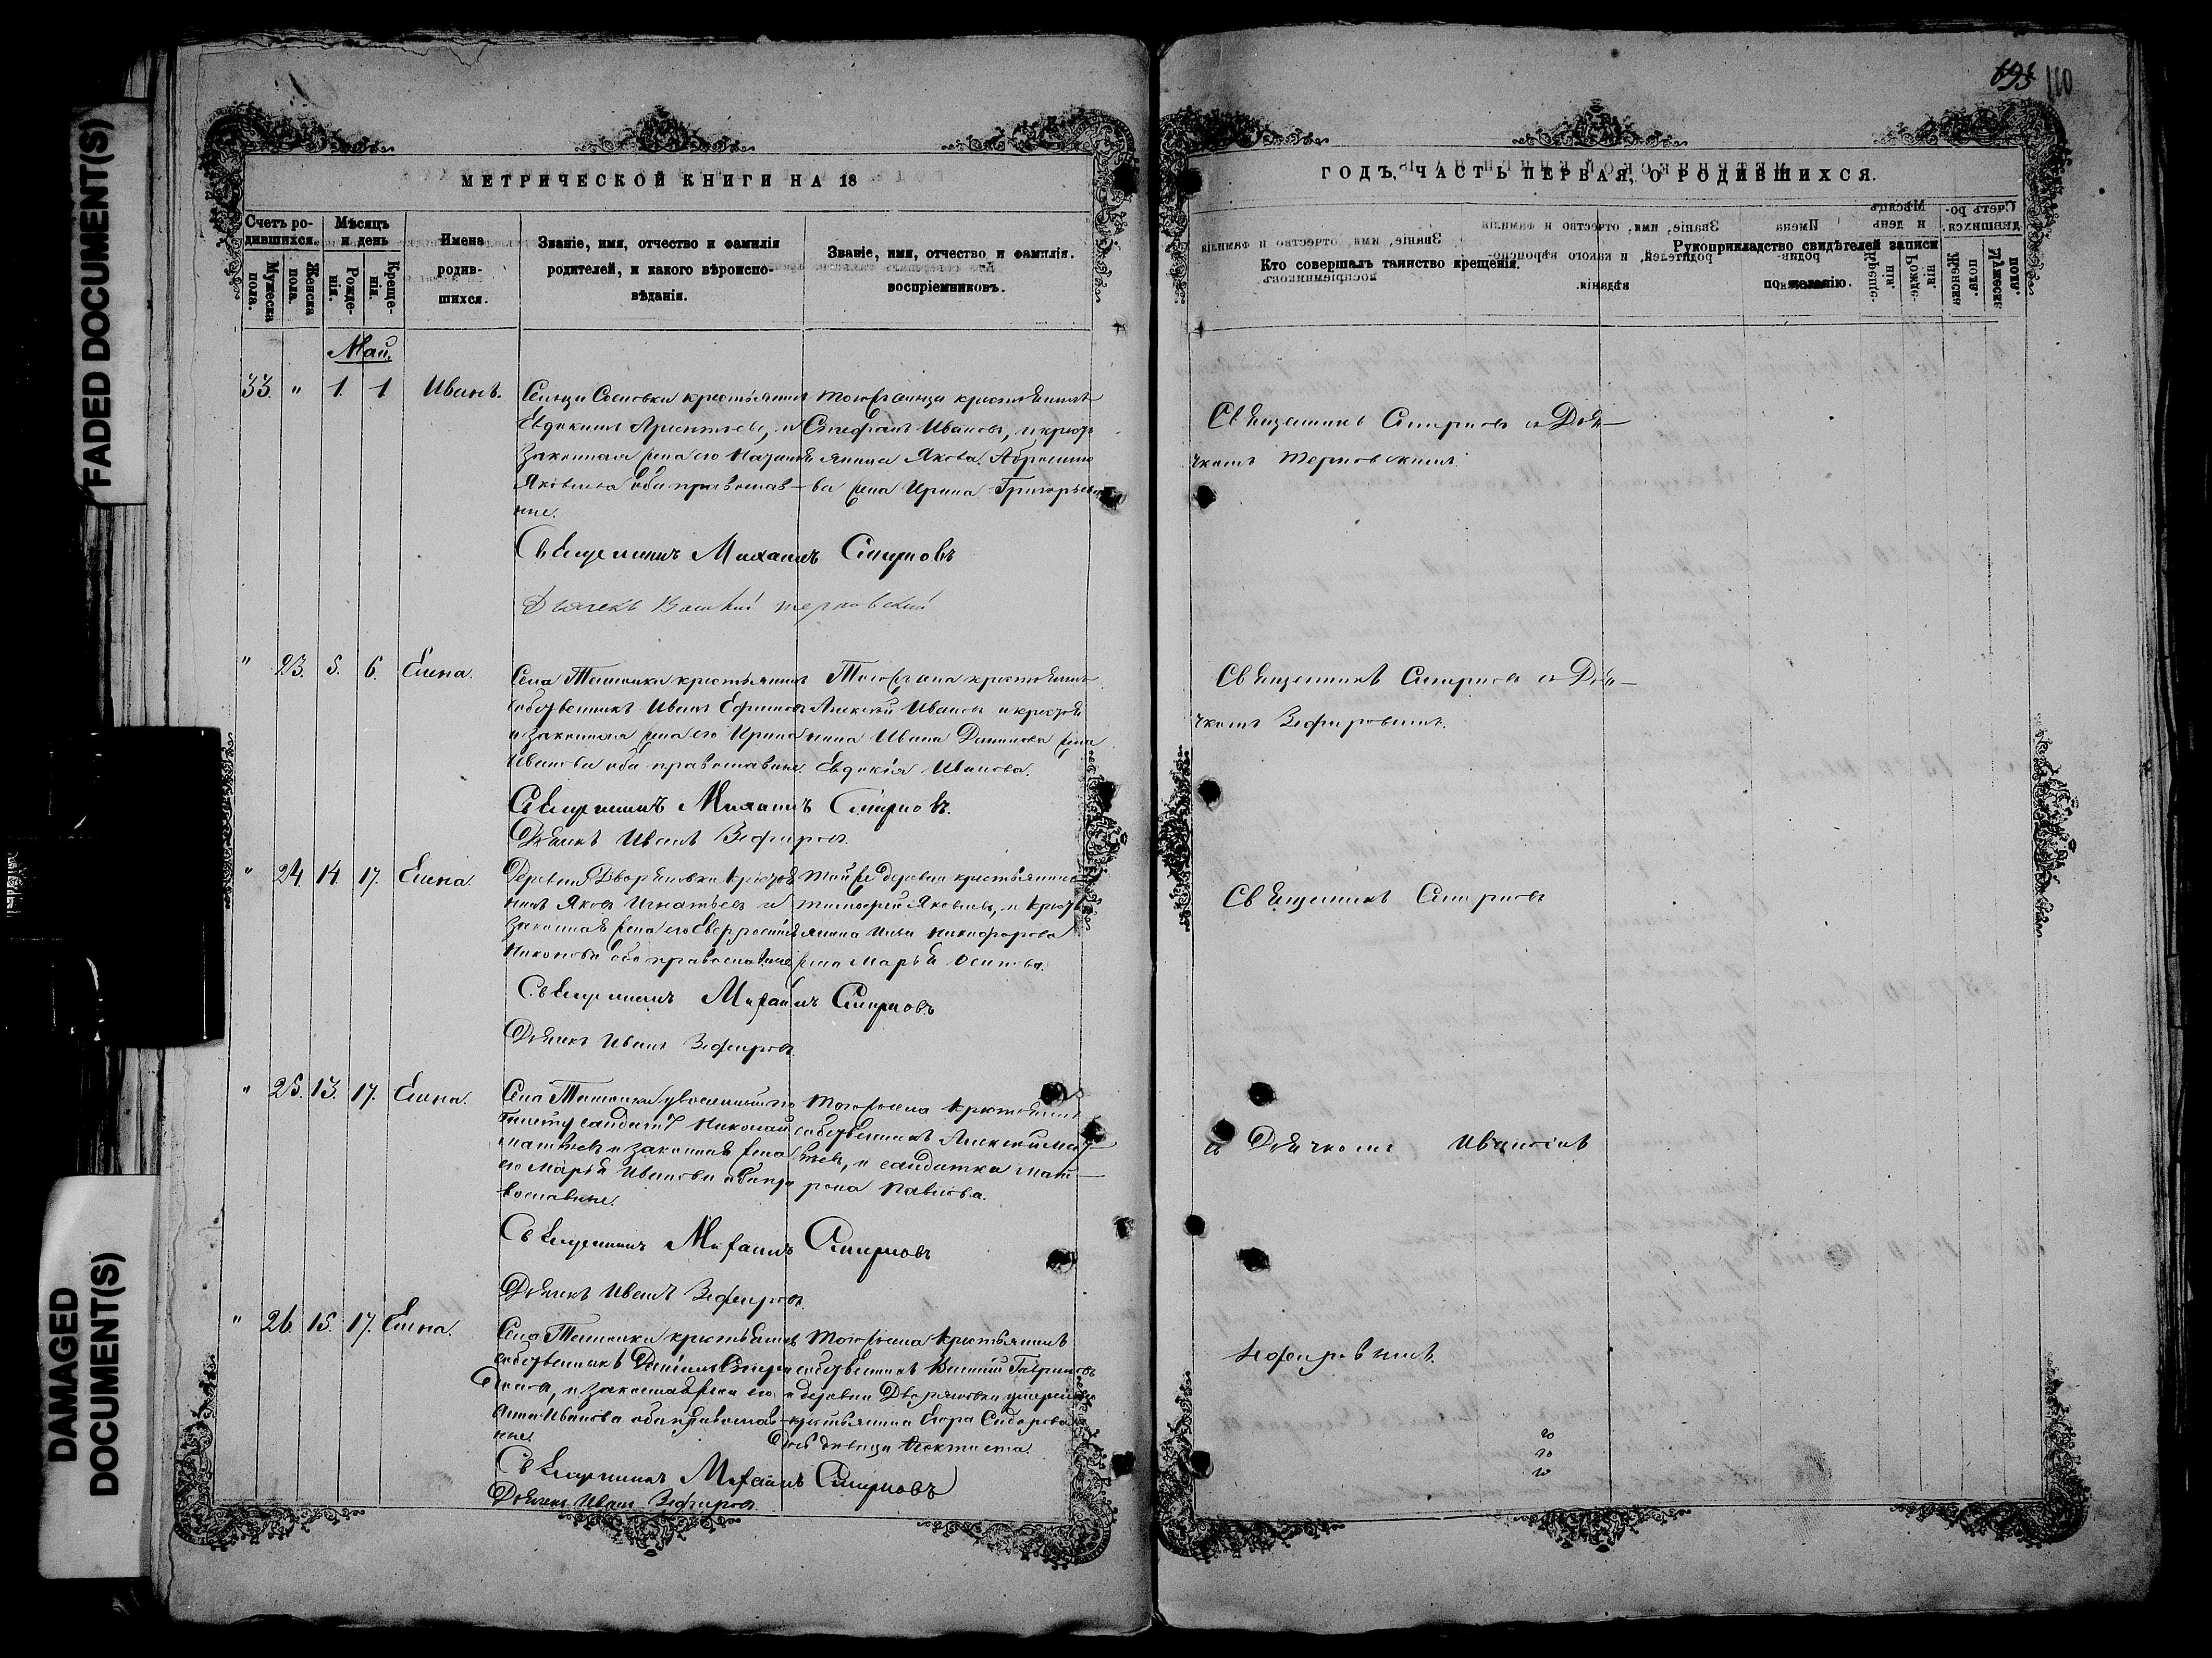 FADED DOCUMENT(S)
DAMAGED
DOCUMENT(S)
695 110
МЕТРИЧЕСКОЙ КНИГИ НА 18
Счетъ ро-
дившихся.
Мужеска
пола.
Женска
пола.
Мѣсяцъ
и день
Рожде-
нія.
Креще-
нія.
Имена
родив-
шихся.
Званіе, имя, отчество и фамилія
родителей, и какого вѣроиспо-
вѣданія.
Званіе, имя, отчество и фамилія.
воспріемниковъ.
Май.
33. " 1. 1 Иванъ.
Сельца Сосновки крестьянинъ
Евдокимъ Арентьевъ, и
Законная жена его
Яковлева оба православ-
ные.
Тогожъ сельца крестьянинъ
Стефанъ Ивановъ, и крестъ
янина Якова Абросимо
ва жена Ирина Григорьева
Священникъ Михаилъ Смирновъ
Дьячекъ Терновскій
" 23. 5. 6. Елена.
Села крестьянинъ
собственникъ Иванъ Ефимовъ
и законная жена его Ирина
Иванова оба православные.
Тогожъ села крестьянинъ
Алексѣй Ивановъ и крестья
нина Ивана Данилова жена
Евдокія Иванова.
Священникъ Михаилъ Смирновъ.
Дьячекъ Иванъ Зефировъ.
" 24. 14. 17. Елена.
Деревни Дворяновки крестья
нинъ Яковъ Игнатьевъ и
законная жена его Евфросинія
Никонова оба православные
Тойже деревни крестьянинъ
Тимофей Яковлевъ, и крестъ
янина Ильи Никифорова
жена Марья Осипова.
Священникъ Михаилъ Смирновъ
Дьячекъ Иванъ Зефировъ.
" 25. 13. 17. Елена.
Села уволенный по
билету солдатъ Николай
Матвѣевъ и законная жена
его Марья Иванова оба пра
вославные.
Тогожъ села крестьянинъ
собственникъ Алексѣй Мат
вѣевъ, и солдатка Мат-
рона Павлова.
Священникъ Михаилъ Смирновъ
Дьячекъ Иванъ Зефировъ.
" 26. 15. 17. Елена.
Села крестьянинъ
собственникъ Даніилъ
и законная жена его
Анна Иванова оба православ-
ные.
Тогожъ села крестьянинъ
собственникъ Василій Гавриловъ
и деревни Дворяновки
крестьянина Егора Сидорова
дочь дѣвица Феоктиста.
Священникъ Михаилъ Смирновъ
Дьячекъ Иванъ Зефировъ.
ГОДЪ, ЧАСТЬ ПЕРВАЯ, О РОДИВШИХСЯ.
Кто совершалъ таинство крещенія.
Рукоприкладство свидѣтелей записи
по желанію.
Священникъ Смирновъ съ Дья-
чкомъ Терновскимъ.
Священникъ Смирновъ съ Дья-
чкомъ Зефировымъ.
Священникъ Смирновъ
съ Дьячкомъ Иваномъ
Зефировымъ.